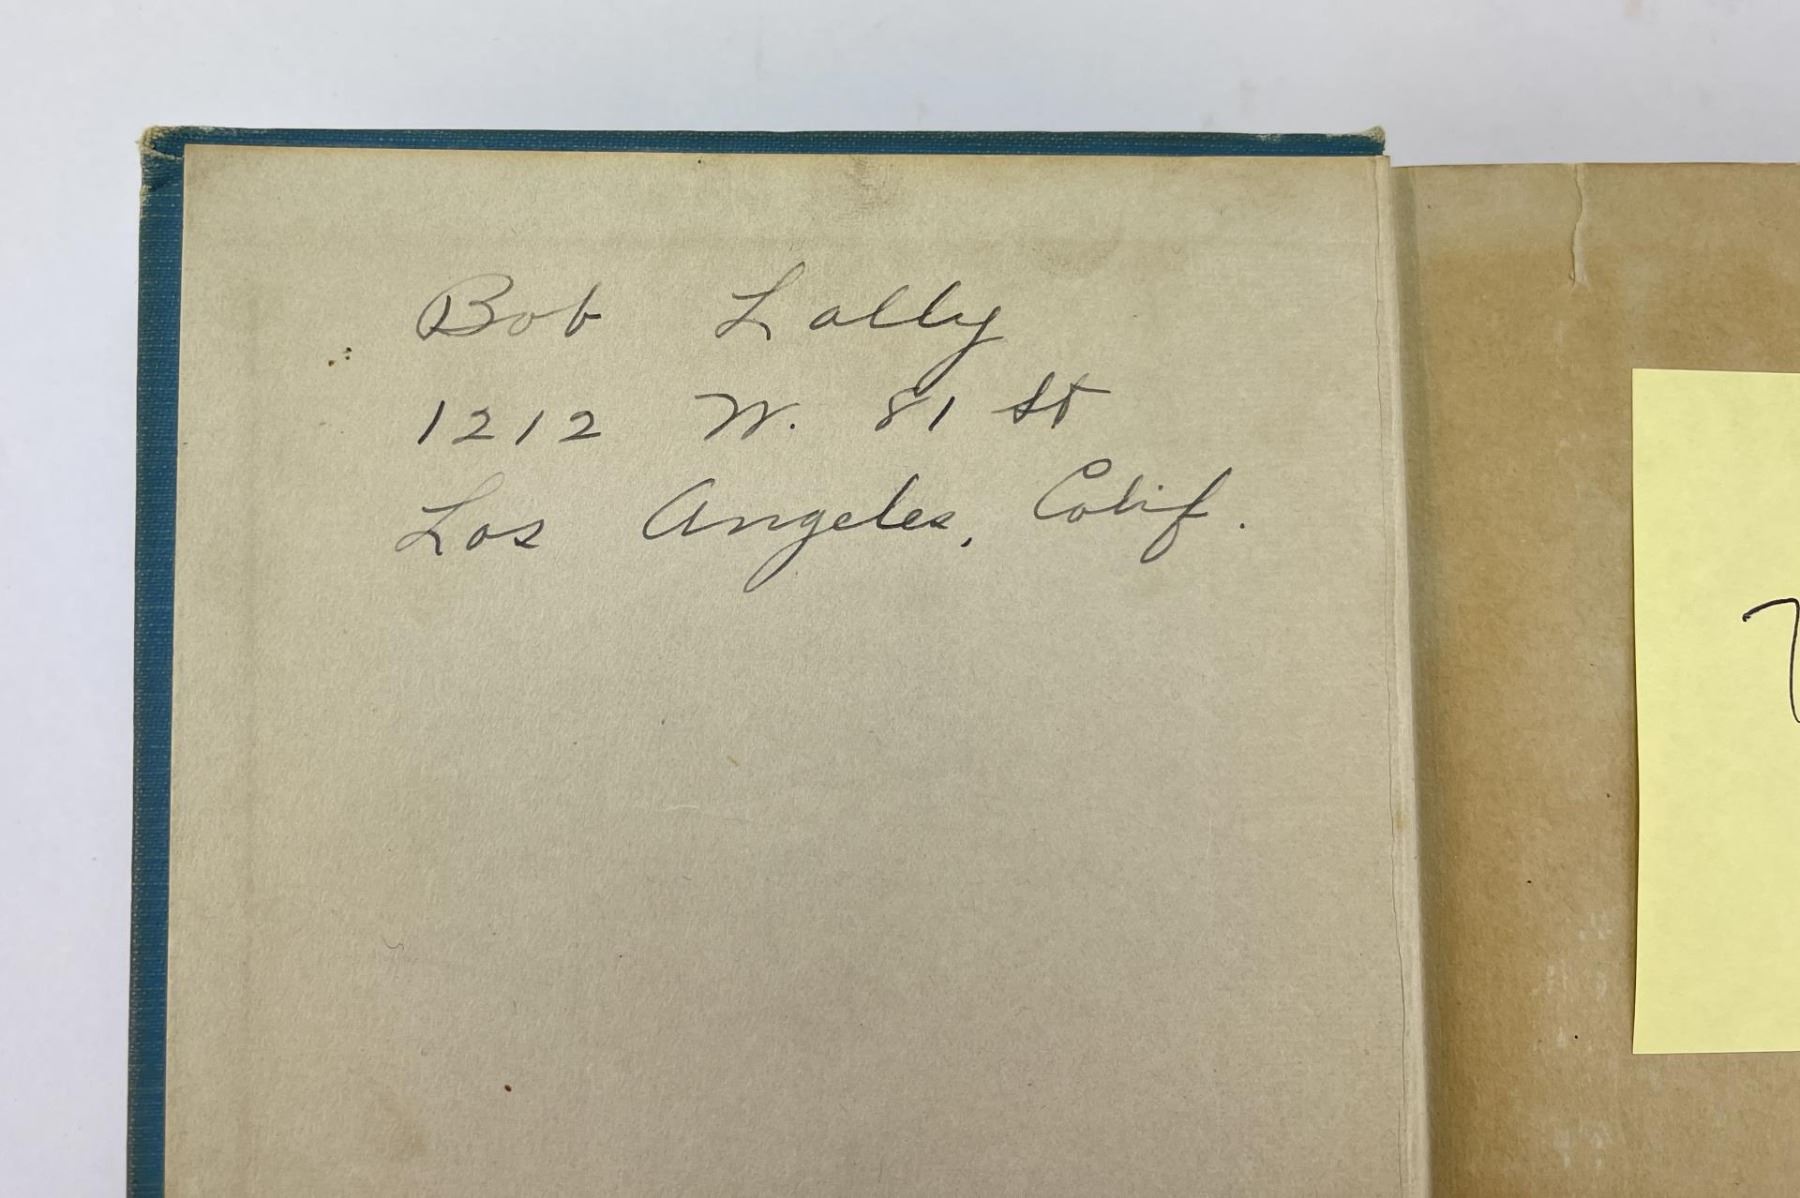 Bob Lally
1212 W. 81 St
Los Angeles, Calif.